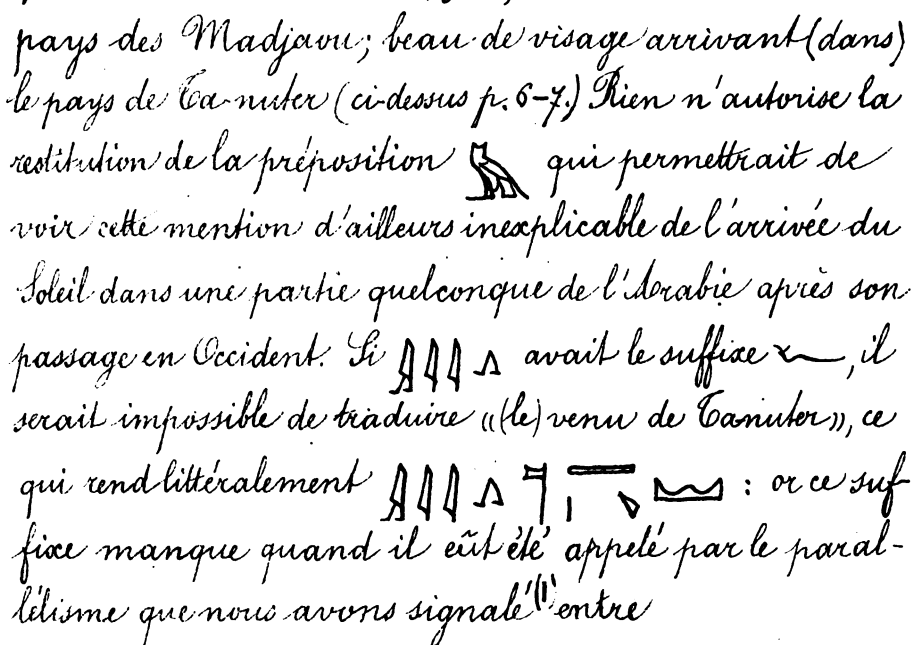 pays des Madjaou; beau de visage arrivant (dans)
le pays de Ta-nuter (ci-dessus p. 6-7.) Rien n'autorise la
restitution de la préposition 𓅓 qui permettrait de
voir cette mention d'ailleurs inexplicable de l'arrivée du
Soleil dans une partie quelconque de l'Arabie après son
passage en Occident. Si 𓇍𓇋𓇋𓂻 avait le suffixe 𓆑, il
serait impossible de traduire «(le) venu de Tanuter», ce
qui rend littéralement : or ce suf-
fixe manque quand il eût été appelé par le paral-
lélisme que nous avons signalé (1) entre